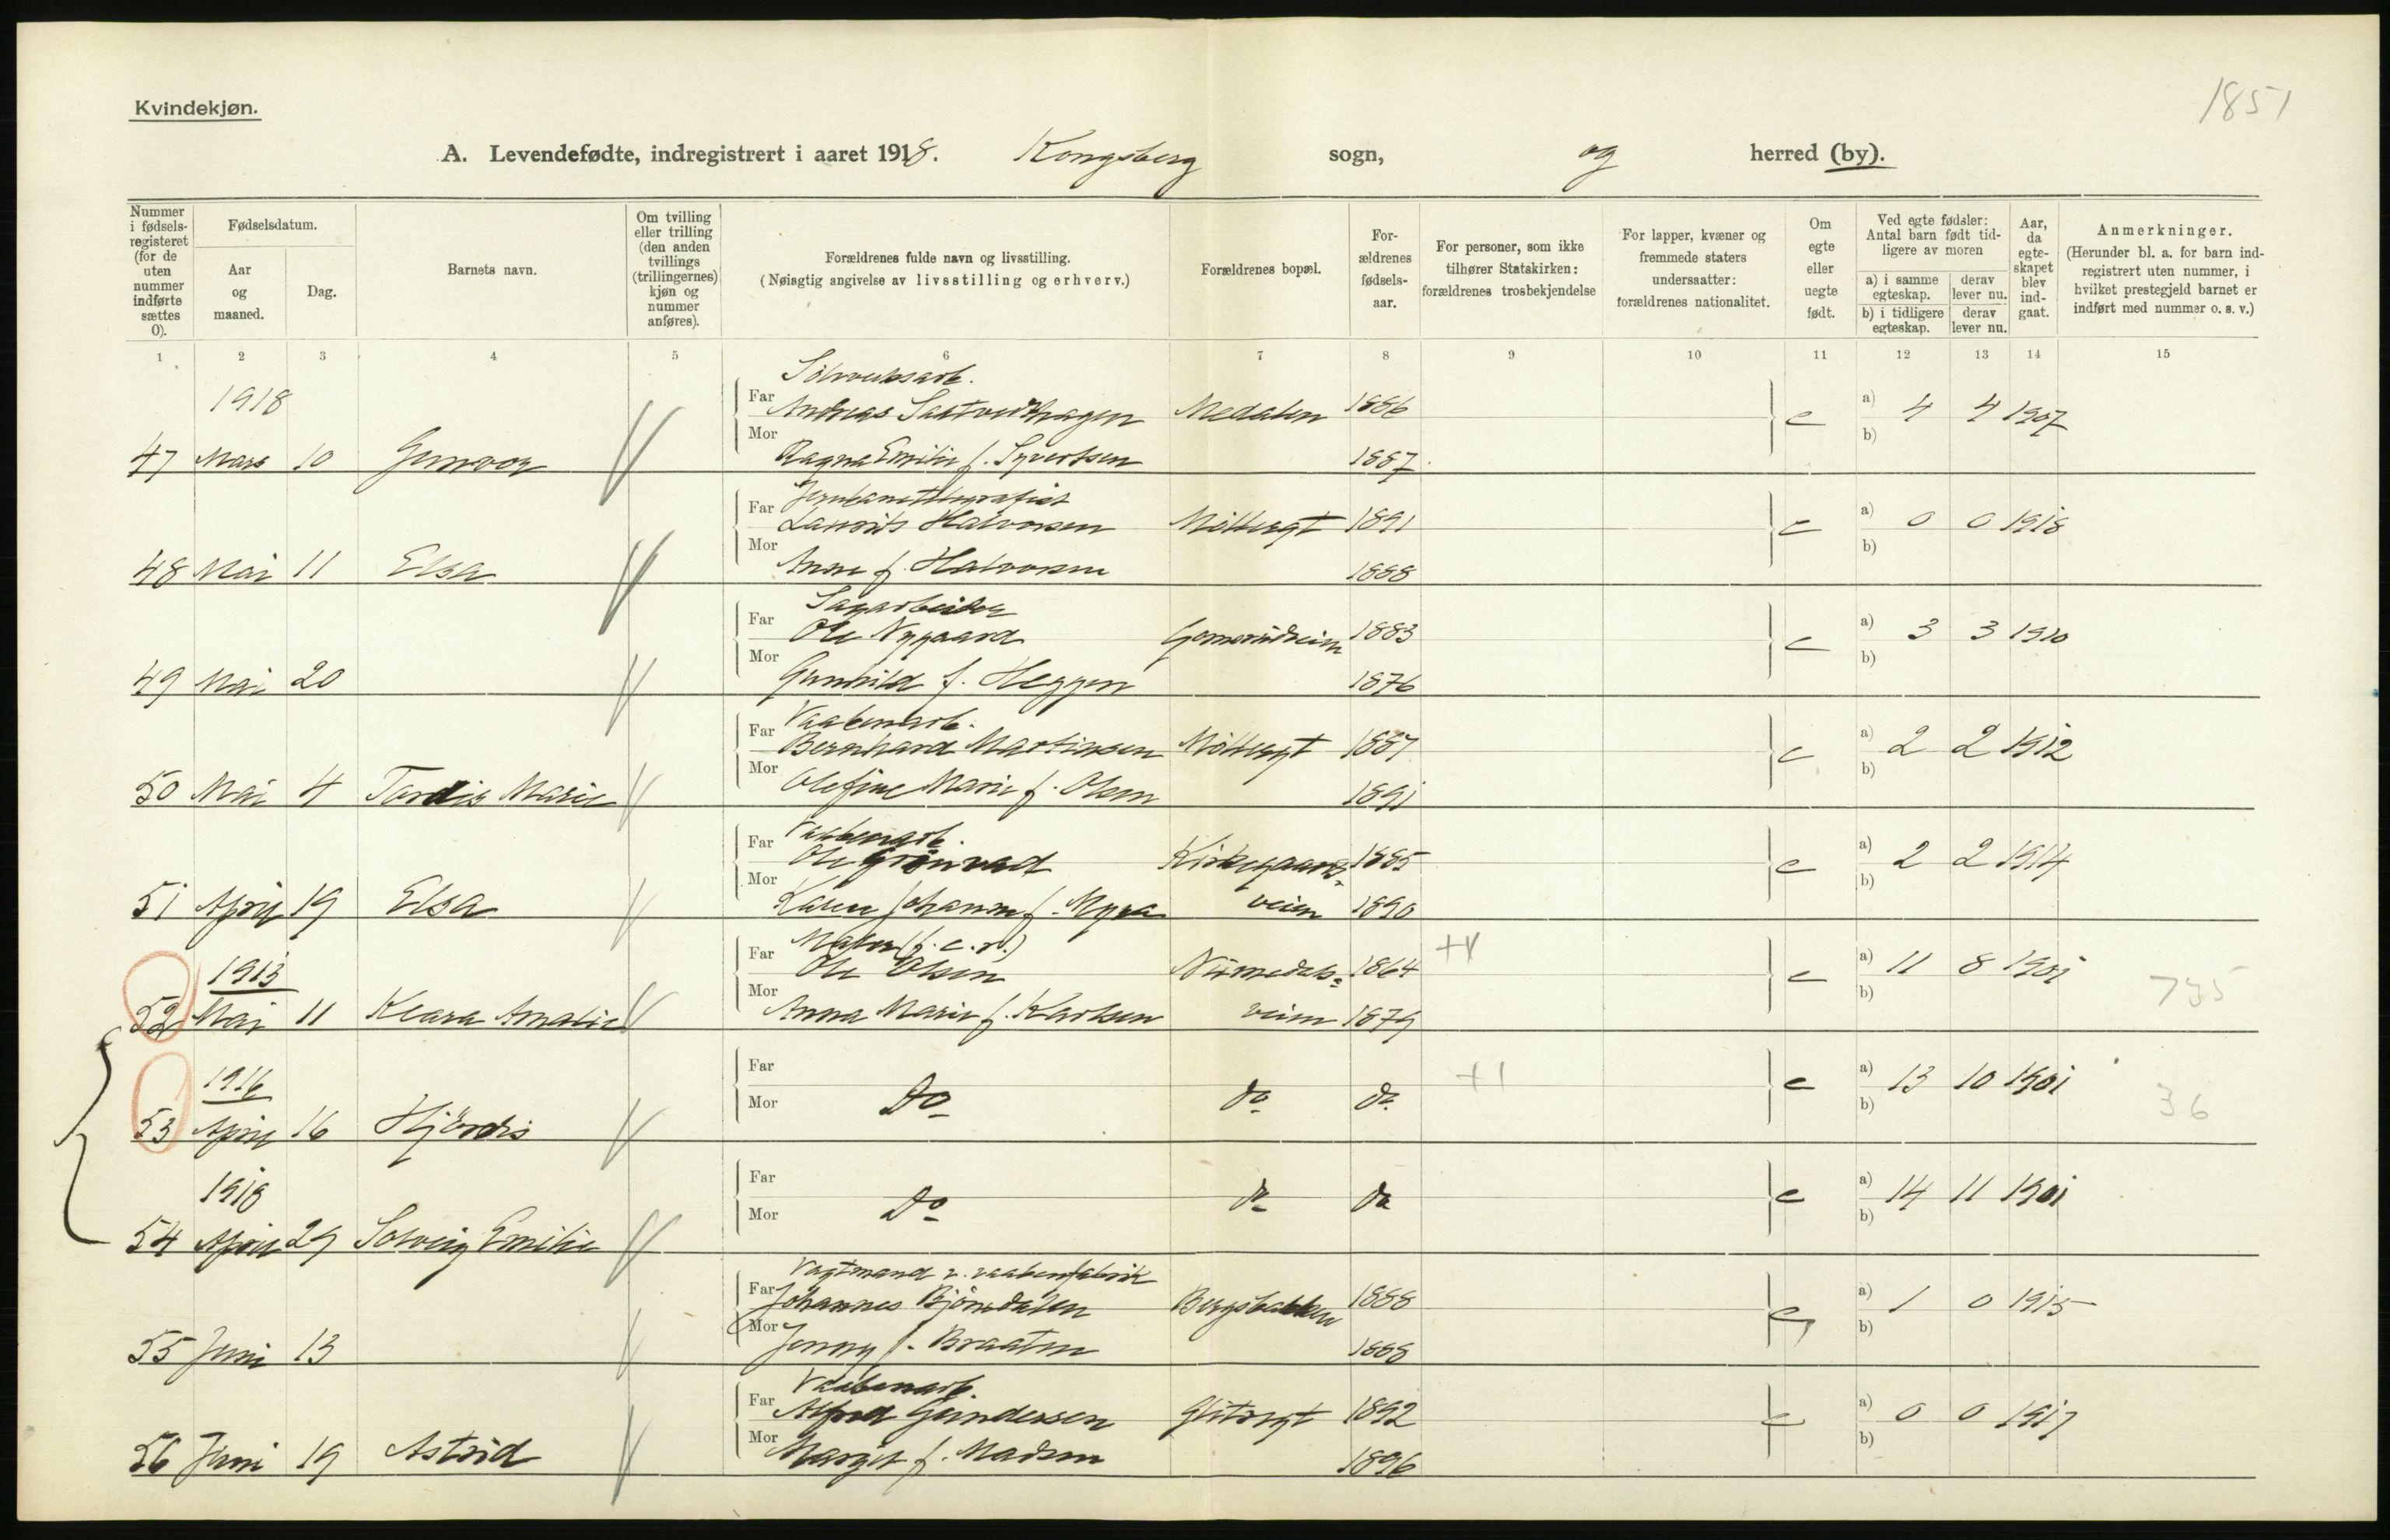 1851
Kvindekjøn.
A. Levendefødte, indregistrert i aaret 1918. Kongsberg sogn, og herred (by).
Nummer i fødselsregisteret (for de uten nummer indførte sættes 0).
Fødselsdatum.
Aar og maaned.
Dag.
Barnets navn.
Om tvilling eller trilling (den anden tvillings (trillingernes) kjøn og nummer anføres).
Forældrenes fulde navn og livsstilling.
(Nøiagtig angivelse av livsstilling og erhverv.)
Forældrenes bopæl.
Forældrenes fødselsaar.
For personer, som ikke tilhører Statskirken: forældrenes trosbekjendelse
For lapper, kvæner og fremmede staters undersaatter: forældrenes nationalitet.
Om egte eller uegte født.
Ved egte fødsler: Antal barn født tidligere av moren
a) i samme egteskap.
derav lever nu.
b) i tidligere egteskap.
derav lever nu.
Aar, da egteskapet blev indgaat.
Anmerkninger.
(Herunder bl. a. for barn indregistrert uten nummer, i hvilket prestegjeld barnet er indført med nummer o. s. v.)
1 2 3 4 5 6 7 8 9 10 11 12 13 14 15
1918
Sølvverksarb.
Far Andreas Saatvedthagen Medalen 1886 e a) 4 4 1907
Mor b)
47 Mars 10 Gunvor Ragna Emilie f. Syvertsen 1887
Jernbanetelegrafist
Far Laurits Halvorsen Møllergt 1891 e a) 0 0 1918
Mor b)
48 Mai 11 Elsa Anne f. Halvorsen 1888
Sagarbeider
Far Ole Nygaard 1883 e a) 3 3 1910
Mor b)
49 Mai 20 Gunhild f. Heggen 1876
Vaabenarb.
Far Bernhard Martinsen Møllergt 1887 e a) 2 2 1912
Mor b)
50 Mai 4 Tordis Marie Olefine Marie f. Olsen 1891
Vaabenarb.
Far Ole Grønvad Kirkegaards- 1885 e a) 2 2 1914
Mor b)
51 April 19 Elsa Karen Johanne f. Myra veien 1890
Maler
Far Ole Olsen Numedals- 1864 e a) 11 8 1901
1913
Mor b) 735
52 Mai 11 Klara Amalie Anna Marie f. Karlsen veien 1879
Far
1916
Do do do +1 e a) 13 10 1901
Mor b) 36
53 April 16 Hjørdis
Far
1918
Do do do e a) 14 11 1901
Mor b)
54 April 29 Solveig Emilie
Vagtmand v. vaabenfabrik
Far Johannes Bjørndalen Bergsbakken 1888 e a) 1 0 1915
Mor b)
55 Juni 13 Jenny f. Braaten 1888
Vaabenarb.
Far Alfred Gundersen Glitregt 1892 e a) 0 0 1917
Mor b)
56 Juni 19 Astrid Margit f. Madsen 1896